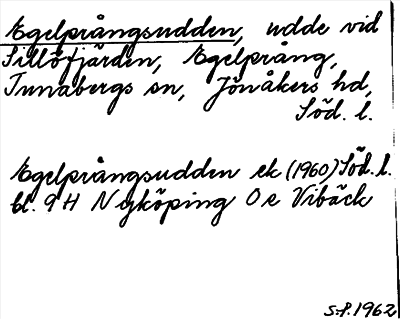 Egelprångsudden, udde vid
Sillöfjärden, Egelprång,
Tunabergs sn, Jönåkers hd,
Söd. l.
Egelprångsudden ek (1960) Söd. l.
bl. 9H Nyköping Oe Vibäck
S.P. 1962